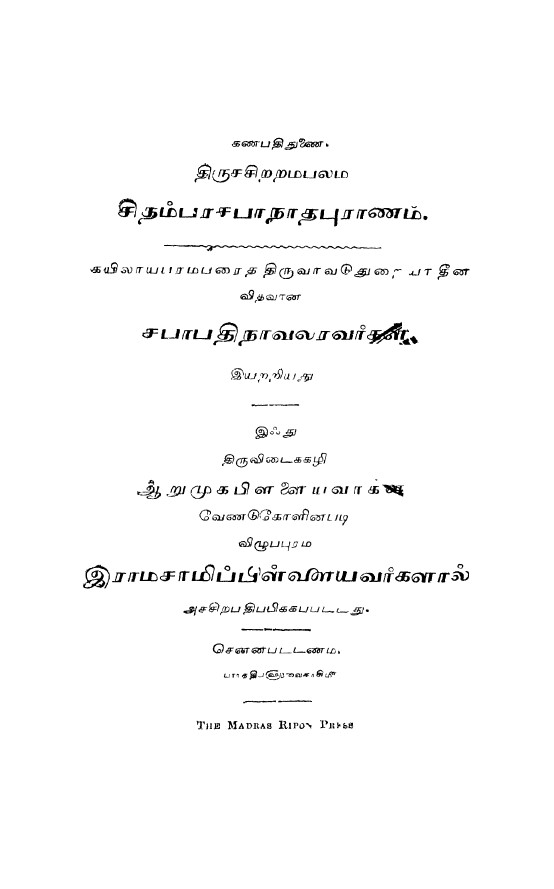 கணபதிதுணை.
திருச்சிற்றம்பலம்
சிதம்பரசபாநாதபுராணம்.
கயிலாயபரம்பரைத் திருவாவடுதுறை யாதீன
வித்வான்
சபாபதிநாவலரவர்கள்
இயற்றியது
இஃது
திருவிடைக்கழி
ஆறுமுகபிள்ளையவர்கள்
வேண்டுகோளின்படி
விழுப்புரம்
இராமசாமிப்பிள்ளையவர்களால்
அச்சிற்பதிப்பிக்கப்பட்டது.
சென்னபட்டணம்.
THE MADRAS RIPON PRESS